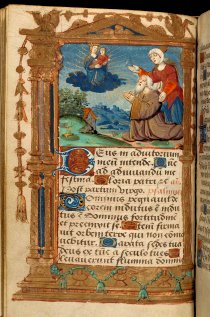 Deus in adiutorium
meū intende. Dñe
ad adiuvandū me
festina. Gloria patri.
Post partum virgo. psalmus
Dominus regnavit de
corem indutus est in
dutus ē Dominus fortitudinē
et precinxit se. Etenī firma
vit orbem terre qui non cōmo
vebitur. Parata sedes tua
deus ex tūc a seculo tu es.
Elevaverunt flumina domine